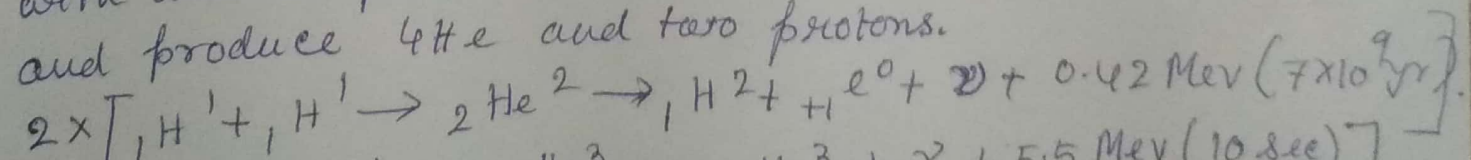 and produce 4He and two protons.
2 × [ ₁H¹ + ₁H¹ → ₂He² → ₁H² + ₊₁e⁰ + ν + 0.42 Mev (7×10⁹yr)].
5.5 Mev (10 see)]